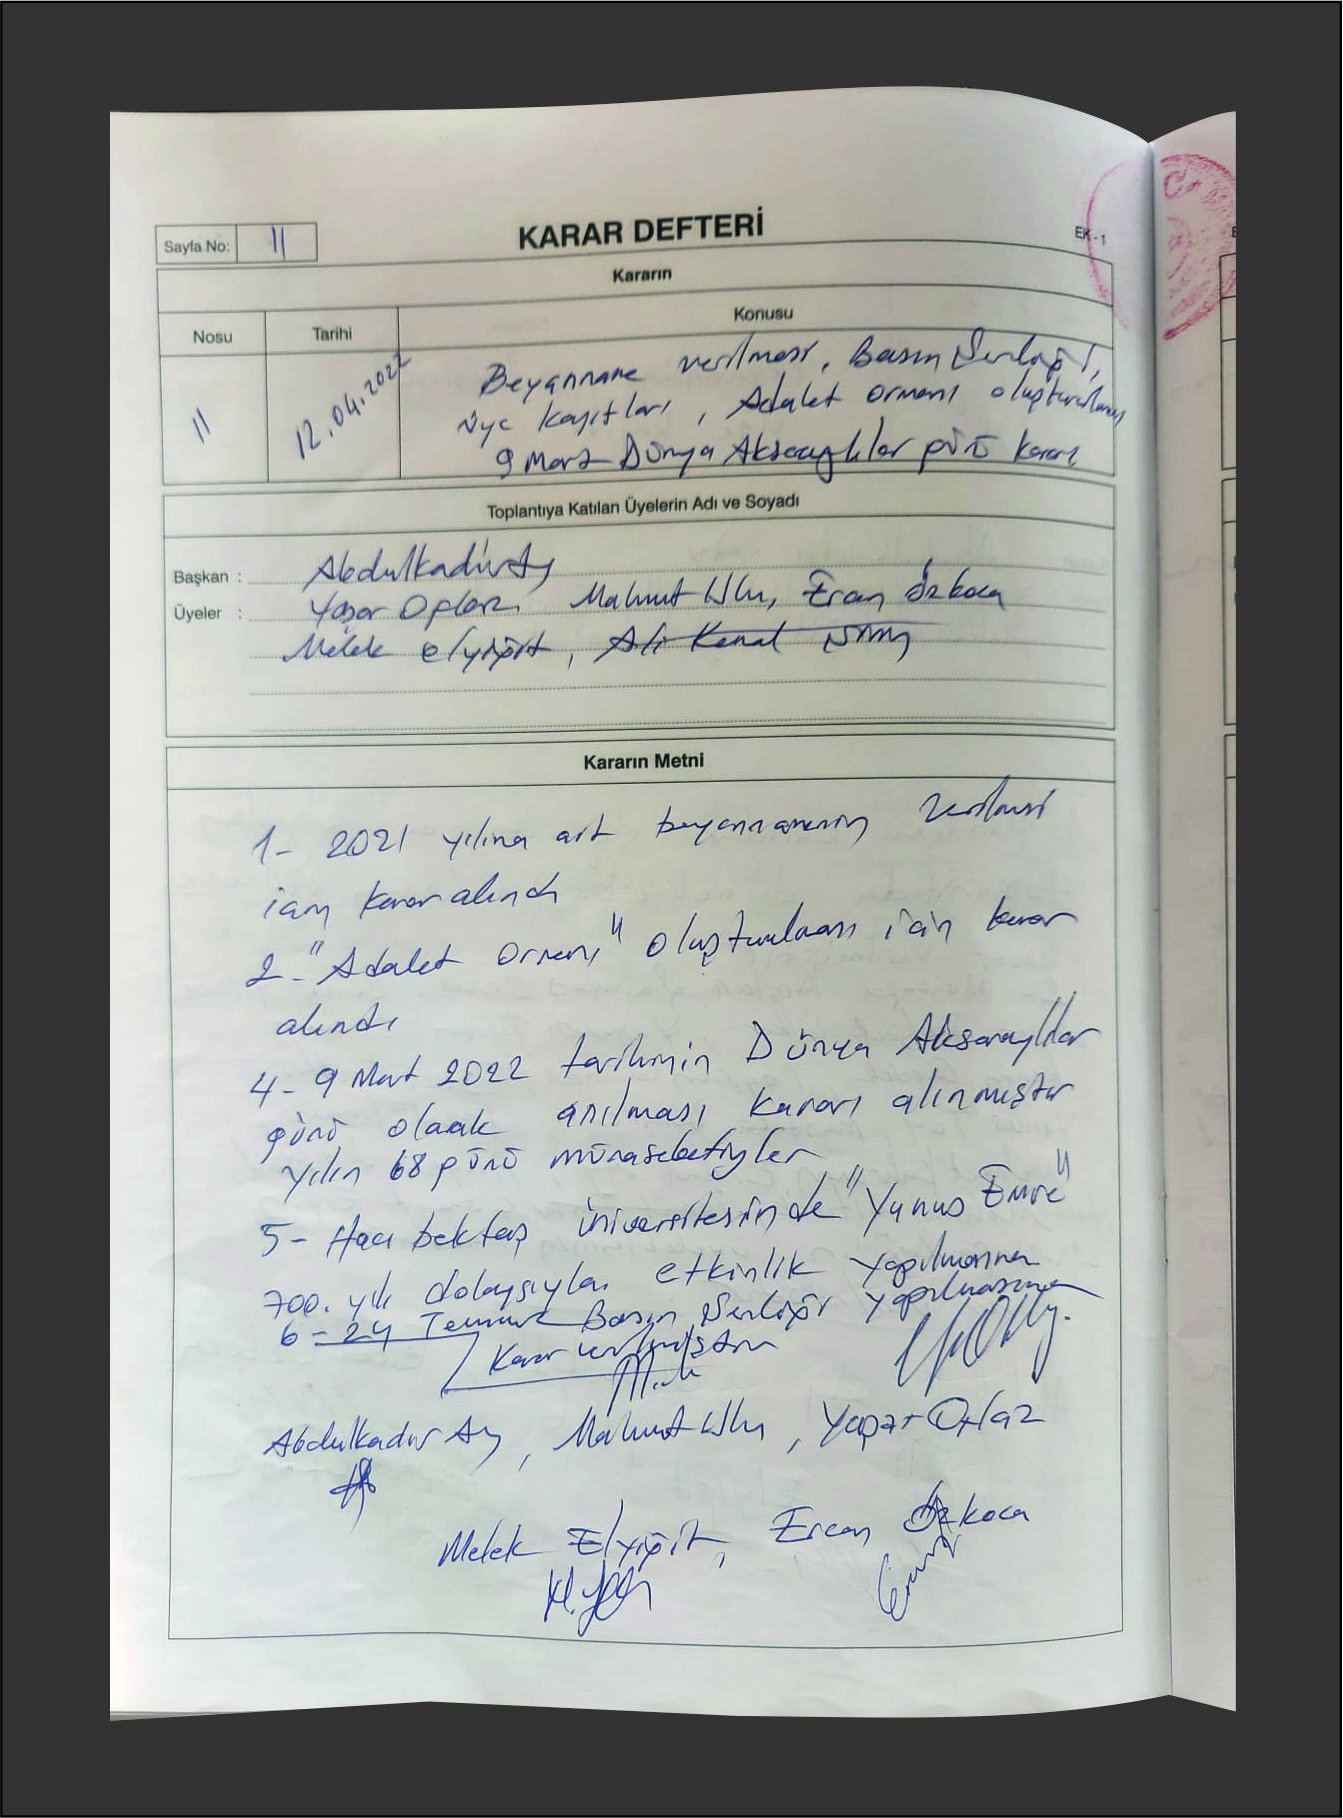 KARAR DEFTERİ
EK-1
Sayfa No: 11
Kararın
Nosu Tarihi Konusu
11 12.04.2022
Beyanname verilmesi, Basın Şenliği,
üye kayıtları, Adalet ormanı oluşturulması
9 Mart Dünya Aksaraylılar günü kararı
Toplantıya Katılan Üyelerin Adı ve Soyadı
Başkan : Abdulkadir Ay
Üyeler : Yaşar Oflaz, Mahmut Ulu, Ercan Özkoca
Melek Elyiğit, Ali Kemal
Kararın Metni
1- 2021 yılına ait beyannamenin verilmesi
için karar alındı
2- "Adalet Ormanı" oluşturulması için karar
alındı
4- 9 Mart 2022 tarihinin Dünya Aksaraylılar
günü olarak anılması kararı alınmıştır
yılın 68 günü münasebetiyler
5- Hacı bektaş üniversitesinde "Yunus Emre"
700. yılı dolayısıyla etkinlik yapılmasına
6- 24 Temmuz Basın Şenliği yapılmasına
Karar verilmiştir
Abdulkadir Ay, Mahmut Ulu, Yaşar Oflaz
Melek Elyiğit, Ercan Özkoca